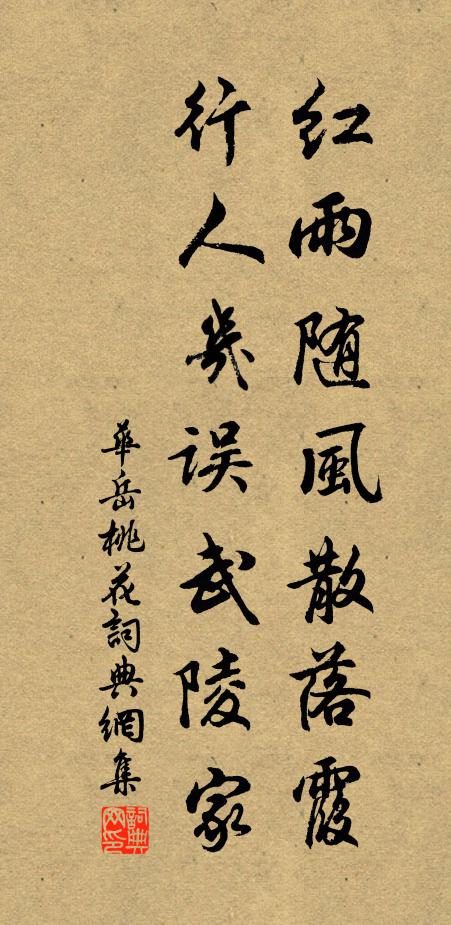 红雨随風散落霞
行人幾误武陵家
華岳桃花詞典網集
詞典
网印